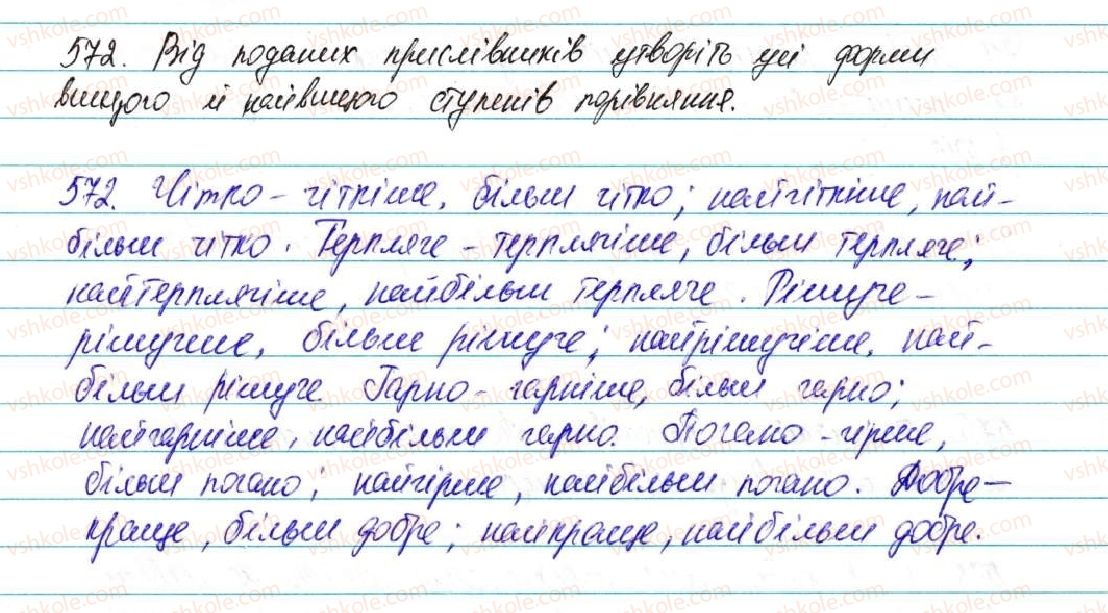 572. Від поданих прислівників утворіть усі форми
вищого й найвищого ступенів порівняння.
572. Чітко - чіткіше, більш чітко; найчіткіше, най-
більш чітко. Терпляче - терплячіше, більш терпляче;
найтерплячіше, найбільш терпляче. Рішуче -
рішучіше, більш рішуче; найрішучіше, най-
більш рішуче. Гарно - гарніше, більш гарно;
найгарніше, найбільш гарно. Погано - гірше,
більш погано; найгірше, найбільш погано. Добре -
краще, більш добре; найкраще, найбільш добре.